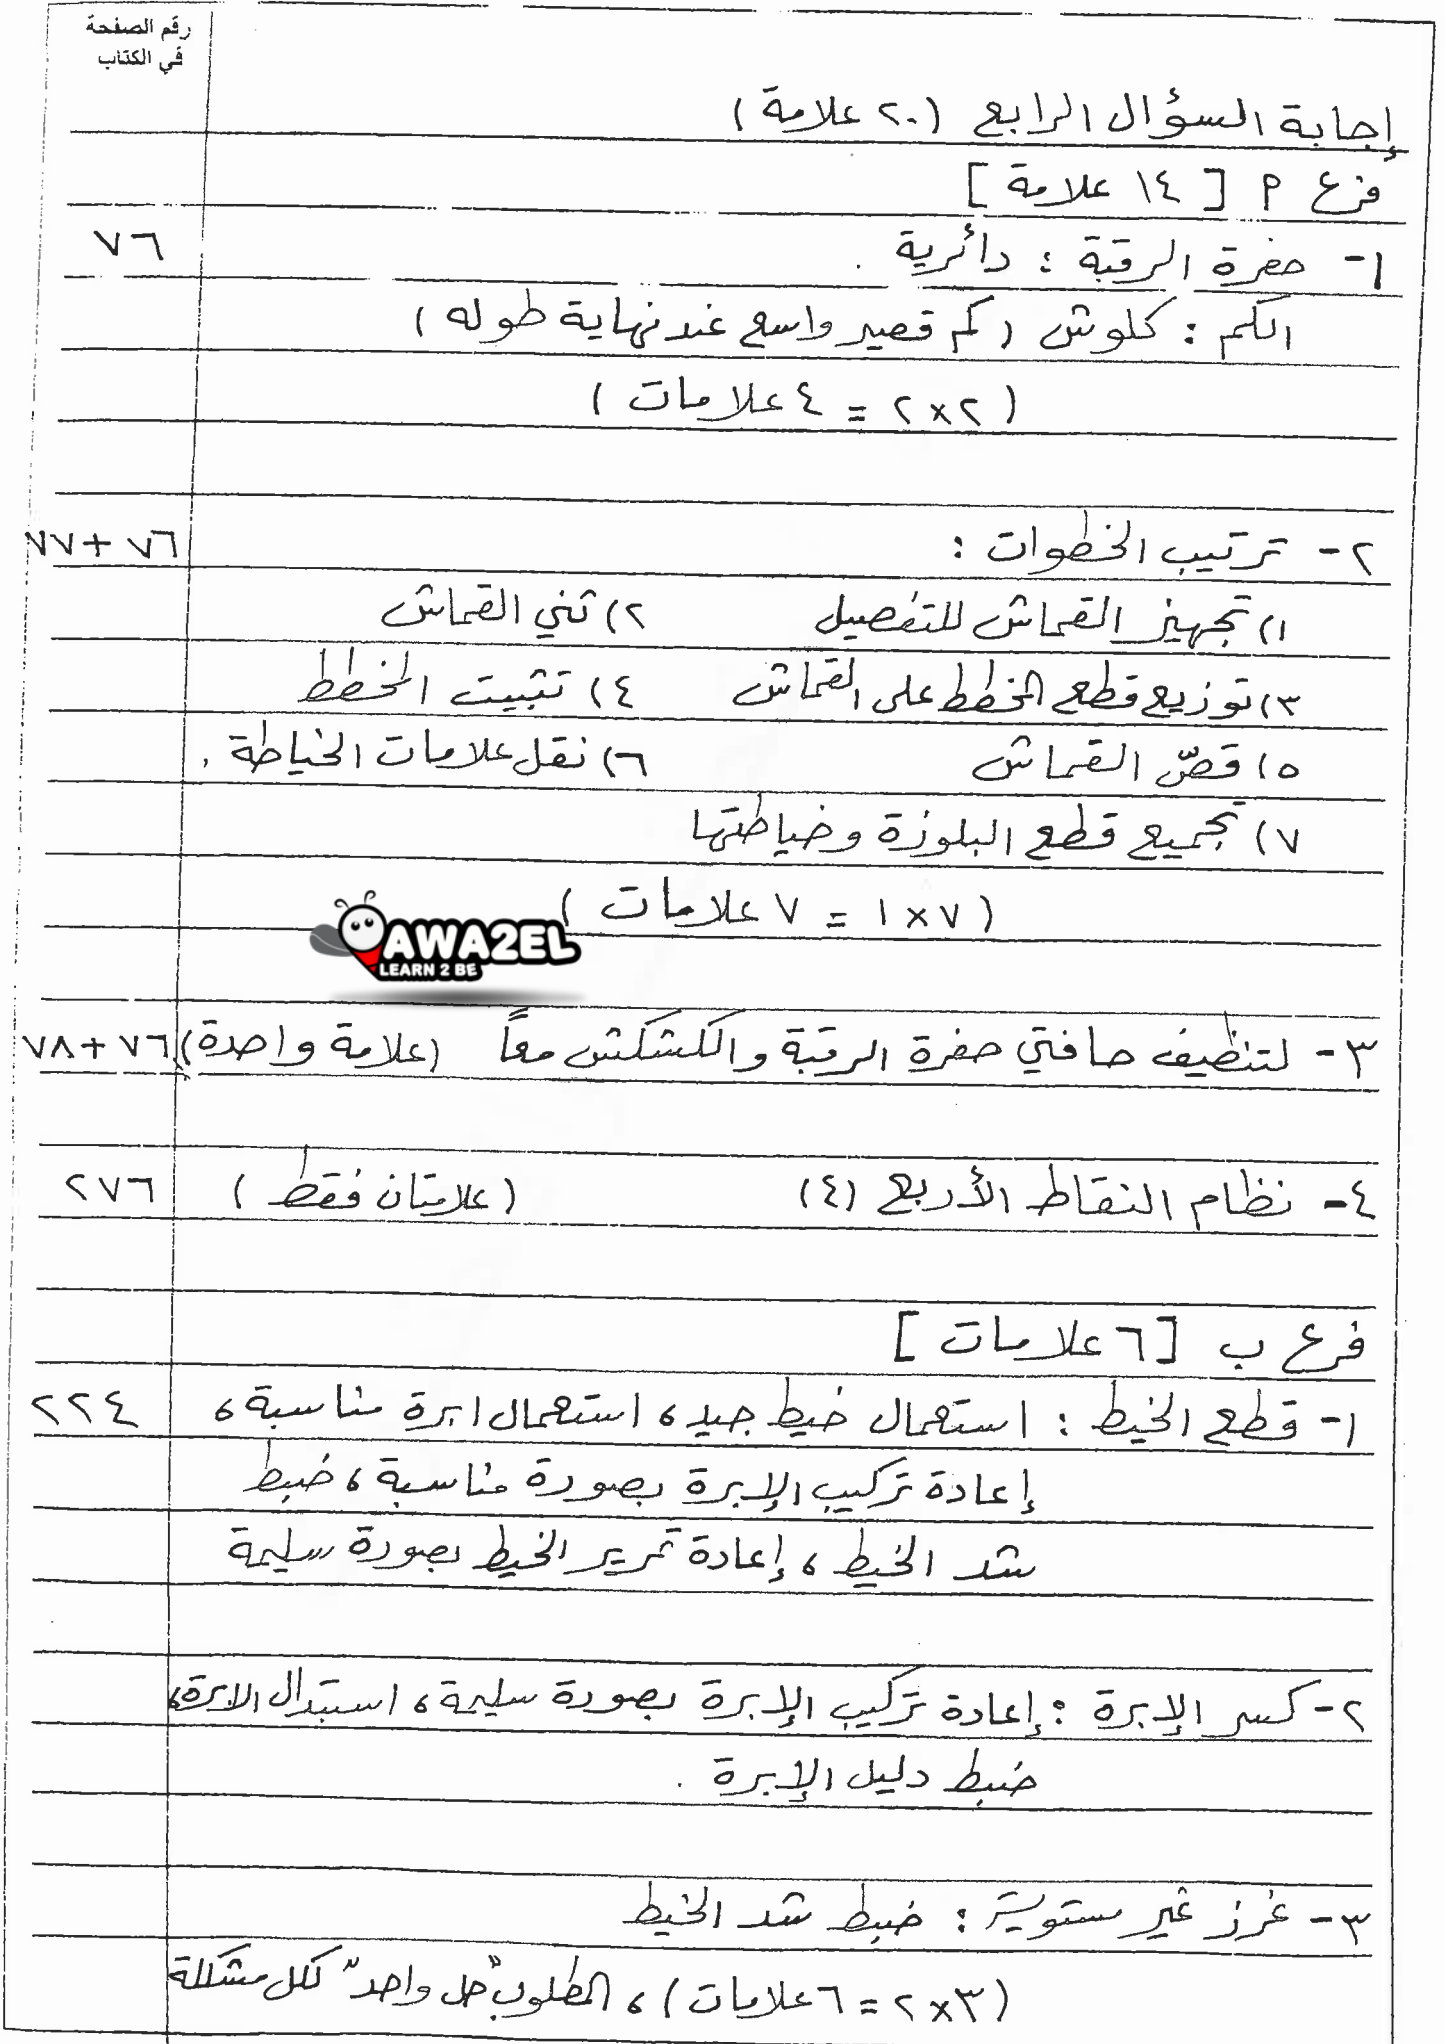 رقم الصفحة
في الكتاب
إجابة السؤال الرابع (٢٠ علامة)
فرع أ [ ١٤ علامة ]
١- حفرة الرقبة : دائرية . ٧٦
الكم : كلوش ( كم قصير واسع عند نهاية طوله )
( ٢×٢ = ٤ علامات )
٢- ترتيب الخطوات : ٧٦+٧٧
١) تجهيز القماش للتفصيل ٢) ثني القماش
٣) توزيع قطع المخطط على القماش ٤) تثبيت المخطط
٥) قصّ القماش ٦) نقل علامات الخياطة .
٧) تجميع قطع البلوزة وخياطتها
( ٧×١ = ٧ علامات )
AWA2EL
LEARN 2 BE
٣- لتنظيف حافتي حفرة الرقبة والكشكش معاً (علامة واحدة) ٧٦+٧٨
٤- نظام النقاط الأربع (٤) (علامتان فقط) ٢٧٦
فرع ب [ ٦ علامات ]
١- قطع الخيط : استعمال خيط جيد، استعمال ابرة مناسبة، ٢٢٤
إعادة تركيب الإبرة بصورة مناسبة، ضبط
شد الخيط، إعادة تمرير الخيط بصورة سليمة
٢- كسر الإبرة : إعادة تركيب الإبرة بصورة سليمة، استبدال الابرة،
ضبط دليل الإبرة .
٣- غرز غير مستوية : ضبط شد الخيط
(٣×٢ = ٦ علامات)، المطلوب "حل واحد" لكل مشكلة